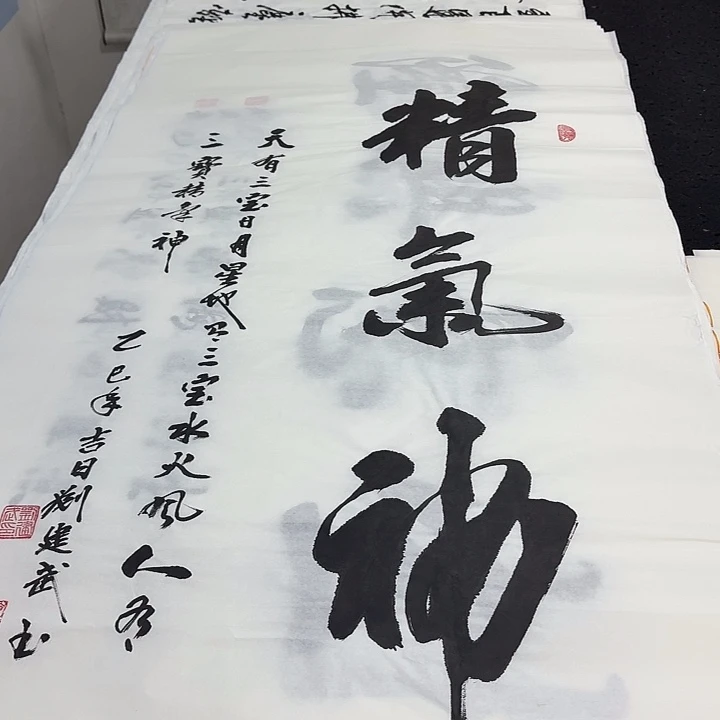 精氣神
天有三宝日月星地有三宝水火風人有
三寶精氣神
乙巳年吉日劉建武书